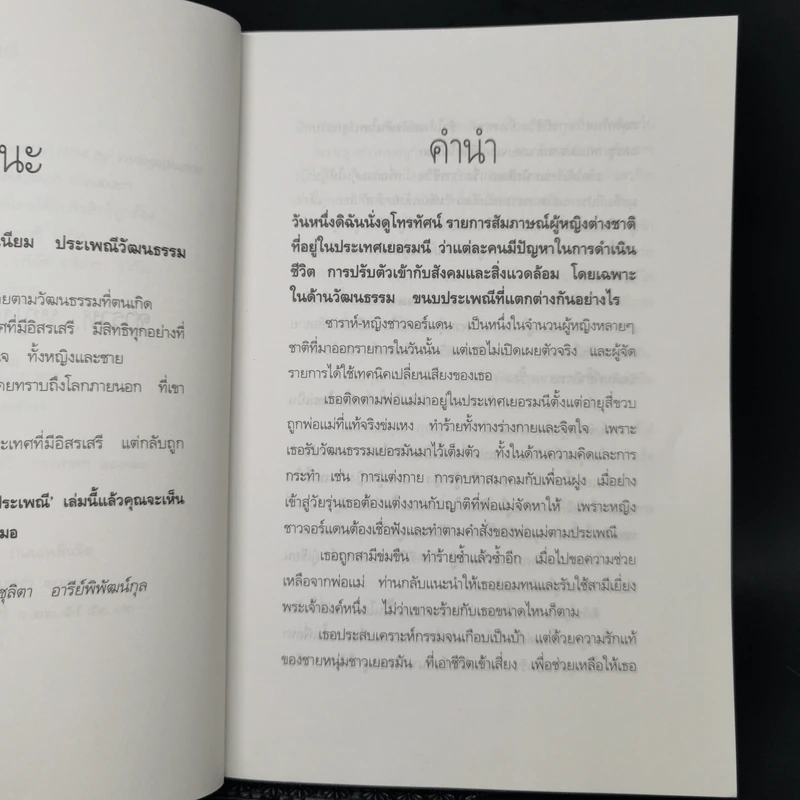 นะ
เนียม ประเพณีวัฒนธรรม
ยตามวัฒนธรรมที่ตนเกิด
ทศที่มีอิสรเสรี มีสิทธิทุกอย่างที่
ใจ ทั้งหญิงและชาย
คยทราบถึงโลกภายนอก ที่เขา
ะเทศที่มีอิสรเสรี แต่กลับถูก
ประเพณี’ เล่มนี้แล้วคุณจะเห็น
มอ
ชุลิตา อารีย์พิพัฒน์กุล
คำนำ
วันหนึ่งดิฉันนั่งดูโทรทัศน์ รายการสัมภาษณ์ผู้หญิงต่างชาติ
ที่อยู่ในประเทศเยอรมนี ว่าแต่ละคนมีปัญหาในการดำเนิน
ชีวิต การปรับตัวเข้ากับสังคมและสิ่งแวดล้อม โดยเฉพาะ
ในด้านวัฒนธรรม ขนบประเพณีที่แตกต่างกันอย่างไร
ซาราห์-หญิงชาวจอร์แดน เป็นหนึ่งในจำนวนผู้หญิงหลายๆ
ชาติที่มาออกรายการในวันนั้น แต่เธอไม่เปิดเผยตัวจริง และผู้จัด
รายการได้ใช้เทคนิคเปลี่ยนเสียงของเธอ
เธอติดตามพ่อแม่มาอยู่ในประเทศเยอรมนีตั้งแต่อายุสี่ขวบ
ถูกพ่อแม่ที่แท้จริงข่มเหง ทำร้ายทั้งทางร่างกายและจิตใจ เพราะ
เธอรับวัฒนธรรมเยอรมันมาไว้เต็มตัว ทั้งในด้านความคิดและการ
กระทำ เช่น การแต่งกาย การคบหาสมาคมกับเพื่อนฝูง เมื่อย่าง
เข้าสู่วัยรุ่นเธอต้องแต่งงานกับญาติที่พ่อแม่จัดหาให้ เพราะหญิง
ชาวจอร์แดนต้องเชื่อฟังและทำตามคำสั่งของพ่อแม่ตามประเพณี
เธอถูกสามีข่มขืน ทำร้ายซ้ำแล้วซ้ำอีก เมื่อไปขอความช่วย
เหลือจากพ่อแม่ ท่านกลับแนะนำให้เธอยอมทนและรับใช้สามีเยี่ยง
พระเจ้าองค์หนึ่ง ไม่ว่าเขาจะร้ายกับเธอขนาดไหนก็ตาม
เธอประสบเคราะห์กรรมจนเกือบเป็นบ้า แต่ด้วยความรักแท้
ของชายหนุ่มชาวเยอรมัน ที่เอาชีวิตเข้าเสี่ยง เพื่อช่วยเหลือให้เธอ